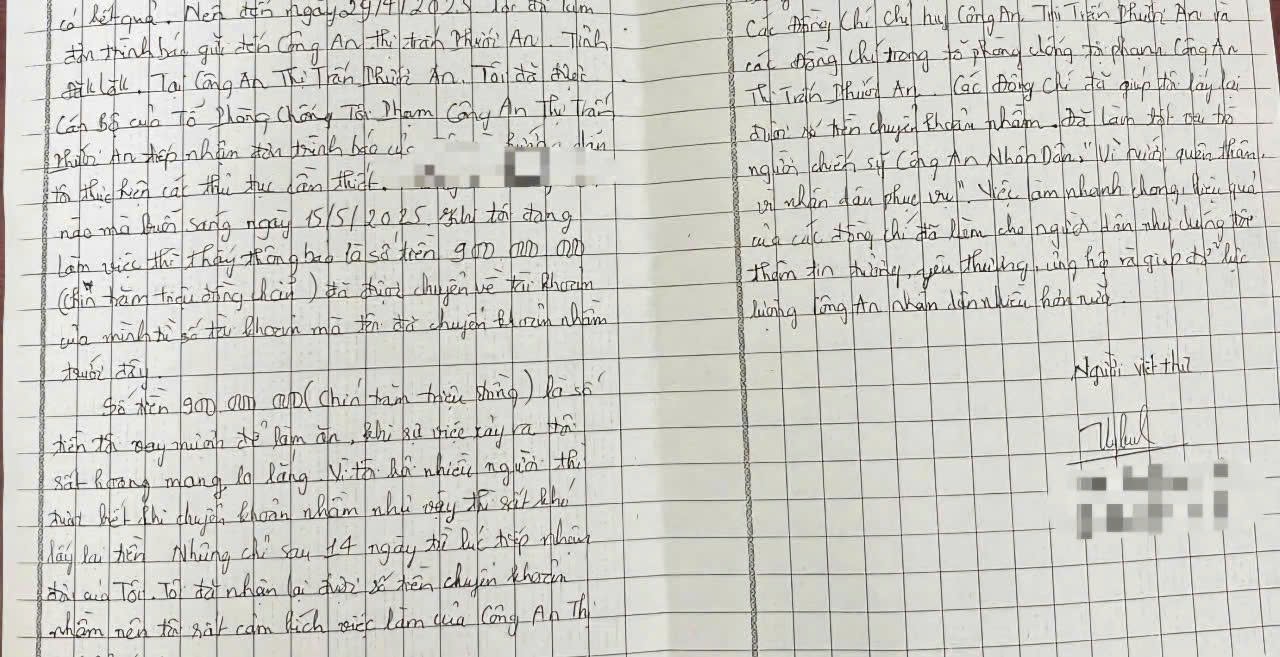 có kết quả. Nên đến ngày 29/4/2025 tôi đã làm
đơn trình báo gửi đến Công An thị trấn Phước An. Tỉnh
Đắk Lắk. Tại Công An Thị Trấn Phước An. Tôi đã được
Cán Bộ của Tổ Phòng Chống Tội Phạm Công An Thị Trấn
Phước An tiếp nhận đơn trình báo của hướng dẫn
tôi thực hiện các thủ tục cần thiết.
nào mà buổi sáng ngày 15/5/2025. Khi tôi đang
làm việc thì thấy thông báo là số tiền 900 000 000
(chín trăm triệu đồng chẵn) đã được chuyển về tài khoản
của mình từ số tài khoản mà tôi đã chuyển khoản nhầm
trước đây.
Số tiền 900 000 000 (chín trăm triệu đồng) là số
tiền tôi vay mượn để làm ăn, khi sự việc xảy ra tôi
rất hoang mang, lo lắng. Vì tôi hỏi nhiều người thì
được biết khi chuyển khoản nhầm như vậy thì rất khó
lấy lại tiền. Nhưng chỉ sau 14 ngày từ lúc tiếp nhận
đơn của Tôi. Tôi đã nhận lại được số tiền chuyển khoản
nhầm nên tôi rất cảm kích việc làm của Công An Thị
Các Đồng Chí chỉ huy Công An. Thị Trấn Phước An và
các Đồng chí trong tổ phòng chống tội phạm Công An
Thị Trấn Phước An. Các Đồng chí đã giúp tôi lấy lại
được số tiền chuyển khoản nhầm. Đã làm tốt vai trò
người chiến sỹ Công An Nhân Dân, "Vì nước quên thân,
vì nhân dân phục vụ". Việc làm nhanh chóng, hiệu quả
của các đồng chí đã làm cho người dân như chúng tôi
thêm tin tưởng, yêu thương, ủng hộ và giúp đỡ lực
lượng Công An nhân dân nhiều hơn nữa.
Người viết thư